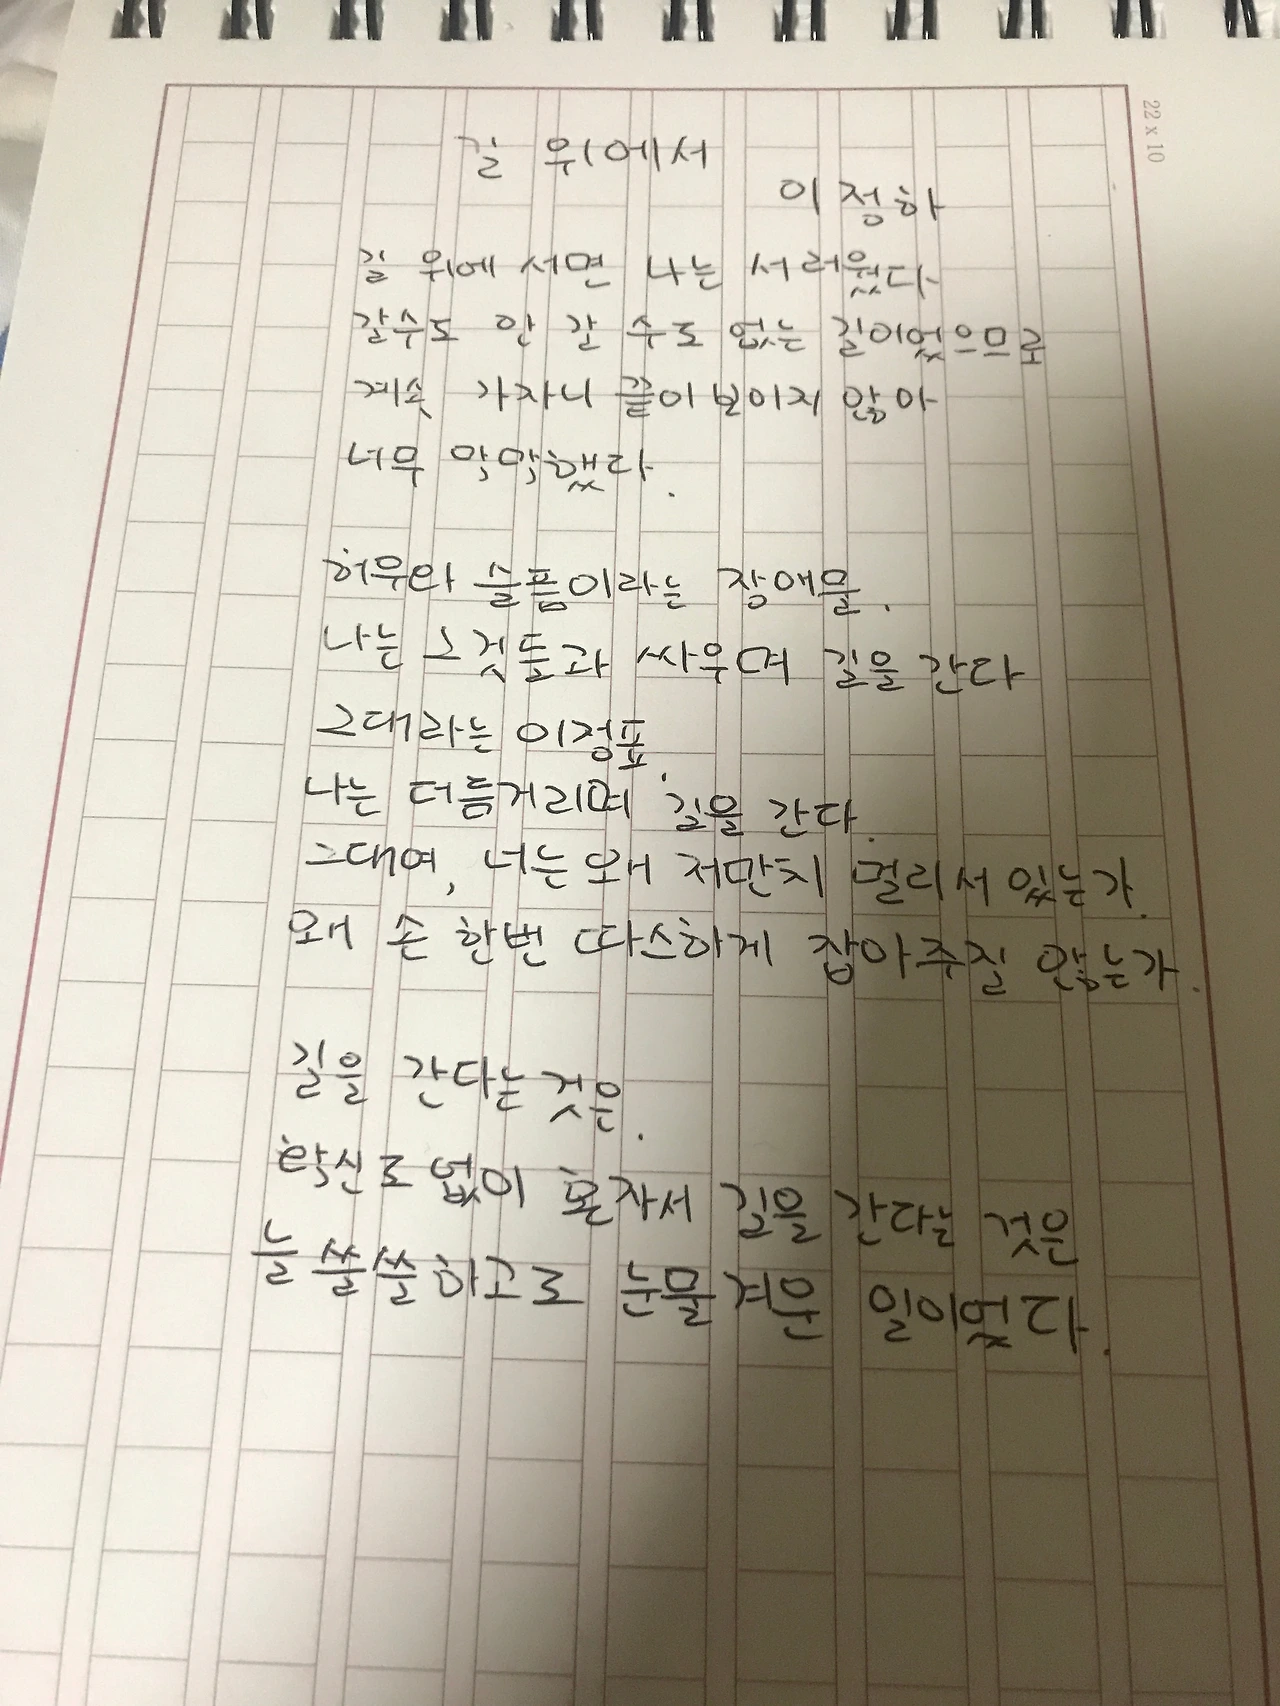 22 x 10
길 위에서
이정하
길 위에 서면 나는 서러웠다
갈수도 안 갈 수도 없는 길이었으므로
계속 가자니 끝이 보이지 않아
너무 막막했다.
허무와 슬픔이라는 장애물.
나는 그것들과 싸우며 길을 간다
그대라는 이정표.
나는 더듬거리며 길을 간다.
그대여, 너는 왜 저만치 멀리 서 있는가.
왜 손 한번 따스하게 잡아주질 않는가.
길을 간다는 것은.
확신도 없이 혼자서 길을 간다는 것은
늘 쓸쓸하고도 눈물겨운 일이었다.